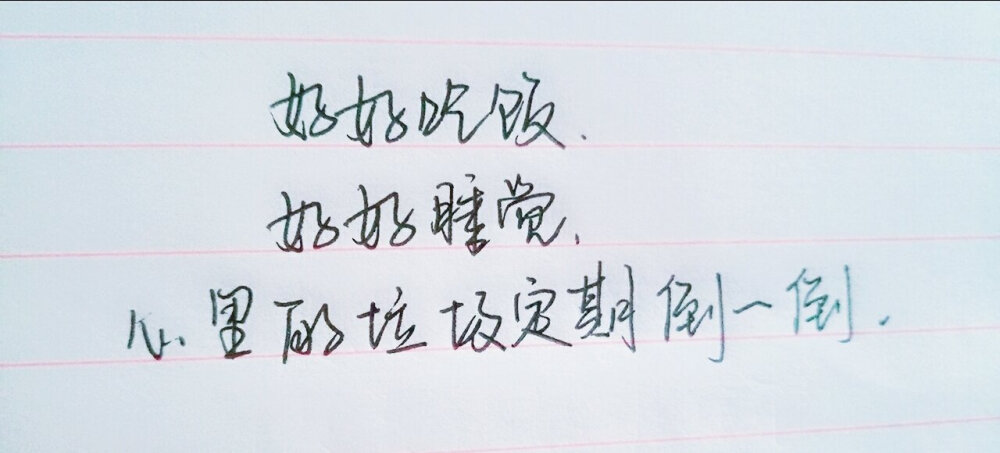 好好吃饭.
好好睡觉.
心里的垃圾定期倒一倒.